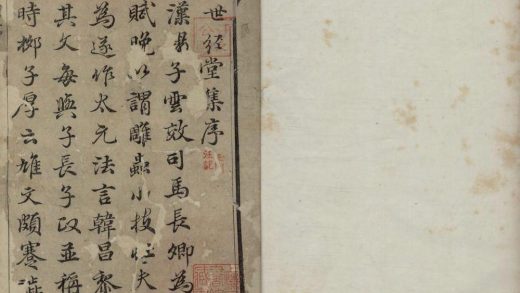 世經堂集序
漢子雲效司馬長卿為
賦晚以謂雕蟲小技壯夫
為遂作太元法言韓昌黎
其文每與子長子政並稱
時柳子厚云雄文頗蹇澁